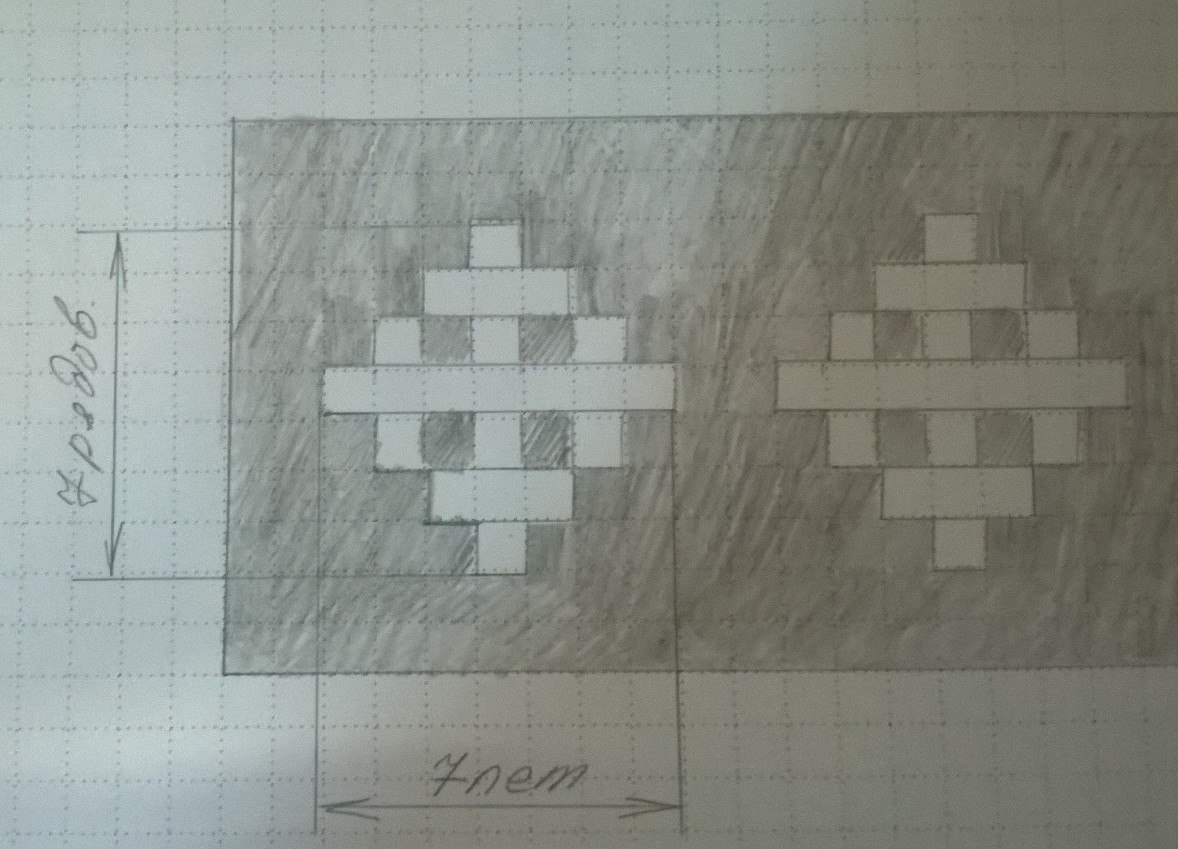 7 рядов.
7 пет